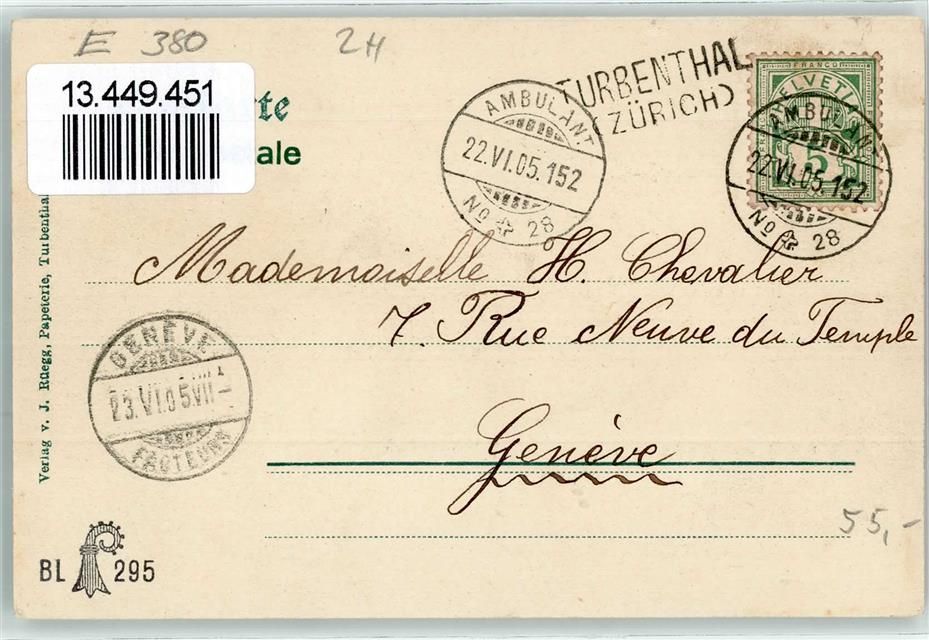 E 380 2H
13.449.451
te
ale
TURBENTHAL
(ZÜRICH)
AMBULANT
22.VI.05.152
No 28
FRANCO
HELVETIA
5
AMBULANT
22.VI.05.152
No 28
Mademoiselle H. Chevalier
7. Rue Neuve du Temple
Genève
GENÈVE
23.VI.05.VII
FACTEURS
Verlag v. J. Rüegg, Papeterie, Turbenthal
55,-
BL 295